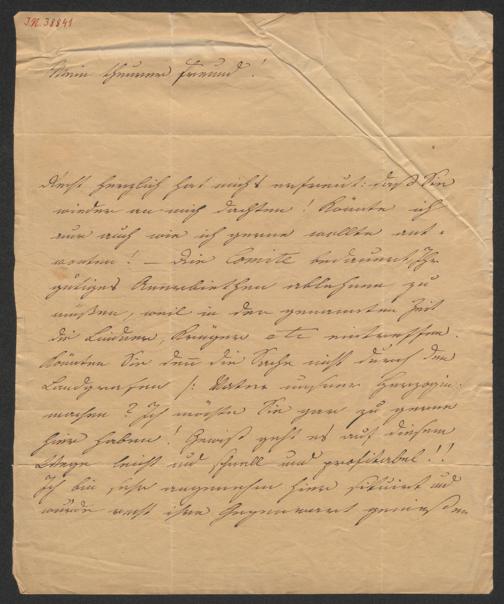 I.N. 38841
Mein theurer Freund!
Recht herzlich hat mich's erfreut: daß Sie
wieder an mich dachten! Könnte ich
nur auch wie ich gerne wollte ant-
worten! – Die Comité bedauert, Ihr
gütiges Anerbiethen ablehnen zu
müßen, weil in der genannten Zeit
die Lindner, Krüger etc eintreffen.
Könnten Sie denn die Sache nicht durch den
Landgrafen /: Vater unserer Herzogin
machen? Ich möchte Sie gar zu gerne
hier haben! Gewiß geht es auf diesem
Wege leicht und schnell und profitabel!!
Ich bin sehr angenehm hier situirt und
würde recht ihre Gegenwart genießen